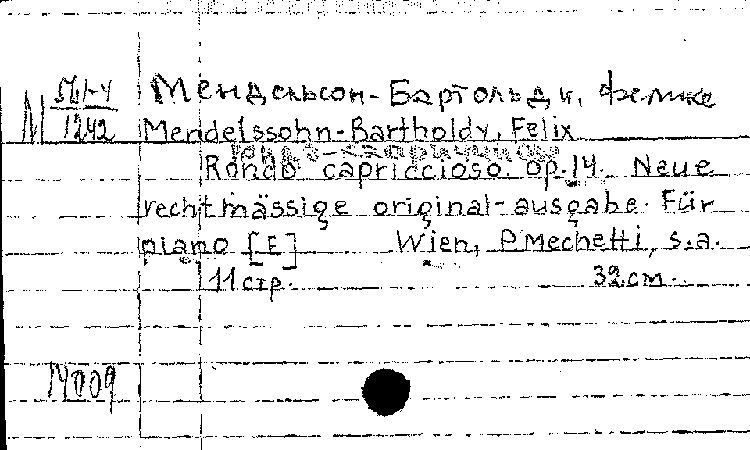 М 561-4 / 1242
Мендельсон-Бартольди, Феликс
Mendelssohn-Bartholdy, Felix
Rondo capriccioso. op.14. Neue
rechtmässige original-ausgabe. Für
piano [E] Wien, P. Mechetti, s.a.
11 стр. 32 см.
М009